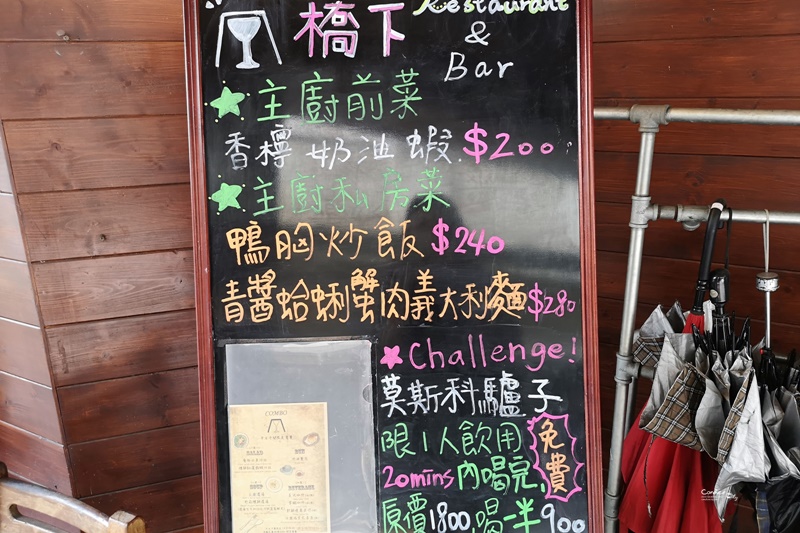 橋下 Restaurant
&
Bar
主廚前菜
香檸奶油蝦 $200
主廚私房菜
鴨胸炒飯 $240
青醬蛤蜊蟹肉義大利麵 $280
Challenge!
莫斯科驢子
限1人飲用
20mins內喝完, 免費
原價1800,喝一半900
COMBO
SALAD
SOUP
BEVERAGE